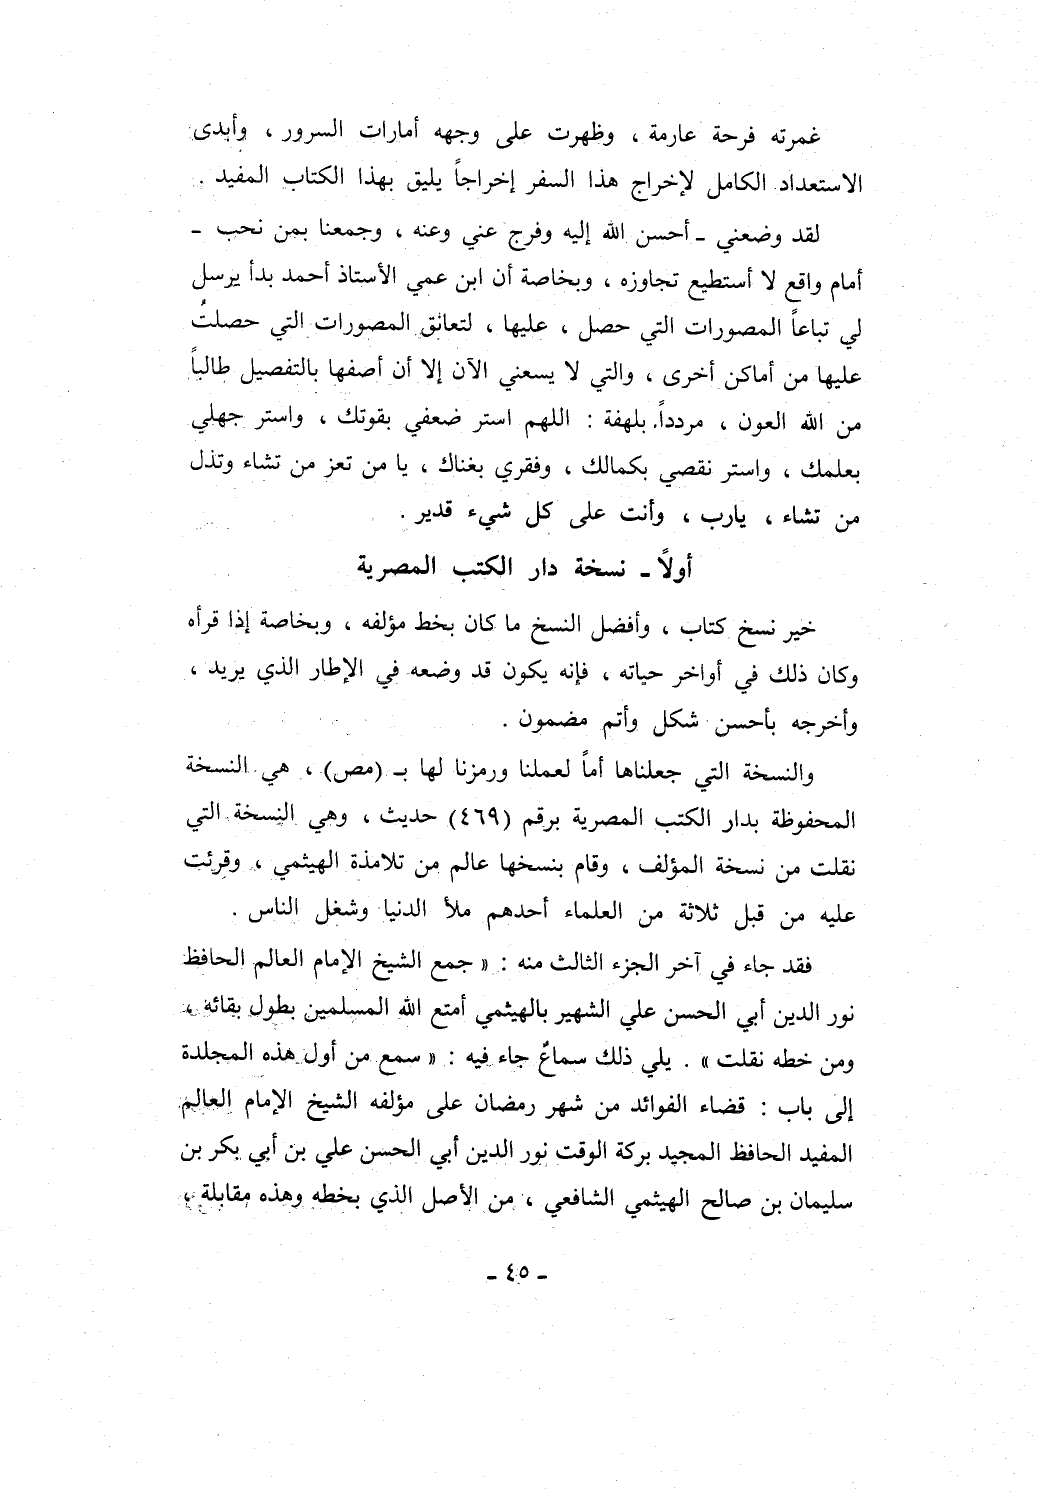 غمرته فرحة عارمة ، وظهرت على وجهه أمارات السرور ، وأبدى
الاستعداد الكامل لإخراج هذا السفر إخراجاً يليق بهذا الكتاب المفيد .
لقد وضعني ـ أحسن الله إليه وفرج عني وعنه ، وجمعنا بمن نحب ـ
أمام واقع لا أستطيع تجاوزه ، وبخاصة أن ابن عمي الأستاذ أحمد بدأ يرسل
لي تباعاً المصورات التي حصل ، عليها ، لتعانق المصورات التي حصلتُ
عليها من أماكن أخرى ، والتي لا يسعني الآن إلا أن أصفها بالتفصيل طالباً
من الله العون ، مردداً بلهفة : اللهم استر ضعفي بقوتك ، واستر جهلي
بعلمك ، واستر نقصي بكمالك ، وفقري بغناك ، يا من تعز من تشاء وتذل
من تشاء ، يارب ، وأنت على كل شيء قدير .
أولاً ـ نسخة دار الكتب المصرية
خير نسخ كتاب ، وأفضل النسخ ما كان بخط مؤلفه ، وبخاصة إذا قرأه
وكان ذلك في أواخر حياته ، فإنه يكون قد وضعه في الإطار الذي يريد ،
وأخرجه بأحسن شكل وأتم مضمون .
والنسخة التي جعلناها أماً لعملنا ورمزنا لها بـ (مص) ، هي النسخة
المحفوظة بدار الكتب المصرية برقم (٤٦٩) حديث ، وهي النسخة التي
نقلت من نسخة المؤلف ، وقام بنسخها عالم من تلامذة الهيثمي ، وقرئت
عليه من قبل ثلاثة من العلماء أحدهم ملأ الدنيا وشغل الناس .
فقد جاء في آخر الجزء الثالث منه : « جمع الشيخ الإمام العالم الحافظ
نور الدين أبي الحسن علي الشهير بالهيثمي أمتع الله المسلمين بطول بقائه ،
ومن خطه نقلت » . يلي ذلك سماعٌ جاء فيه : « سمع من أول هذه المجلدة
إلى باب : قضاء الفوائد من شهر رمضان على مؤلفه الشيخ الإمام العالم
المفيد الحافظ المجيد بركة الوقت نور الدين أبي الحسن علي بن أبي بكر بن
سليمان بن صالح الهيثمي الشافعي ، من الأصل الذي بخطه وهذه مقابلة ،
ـ ٤٥ ـ